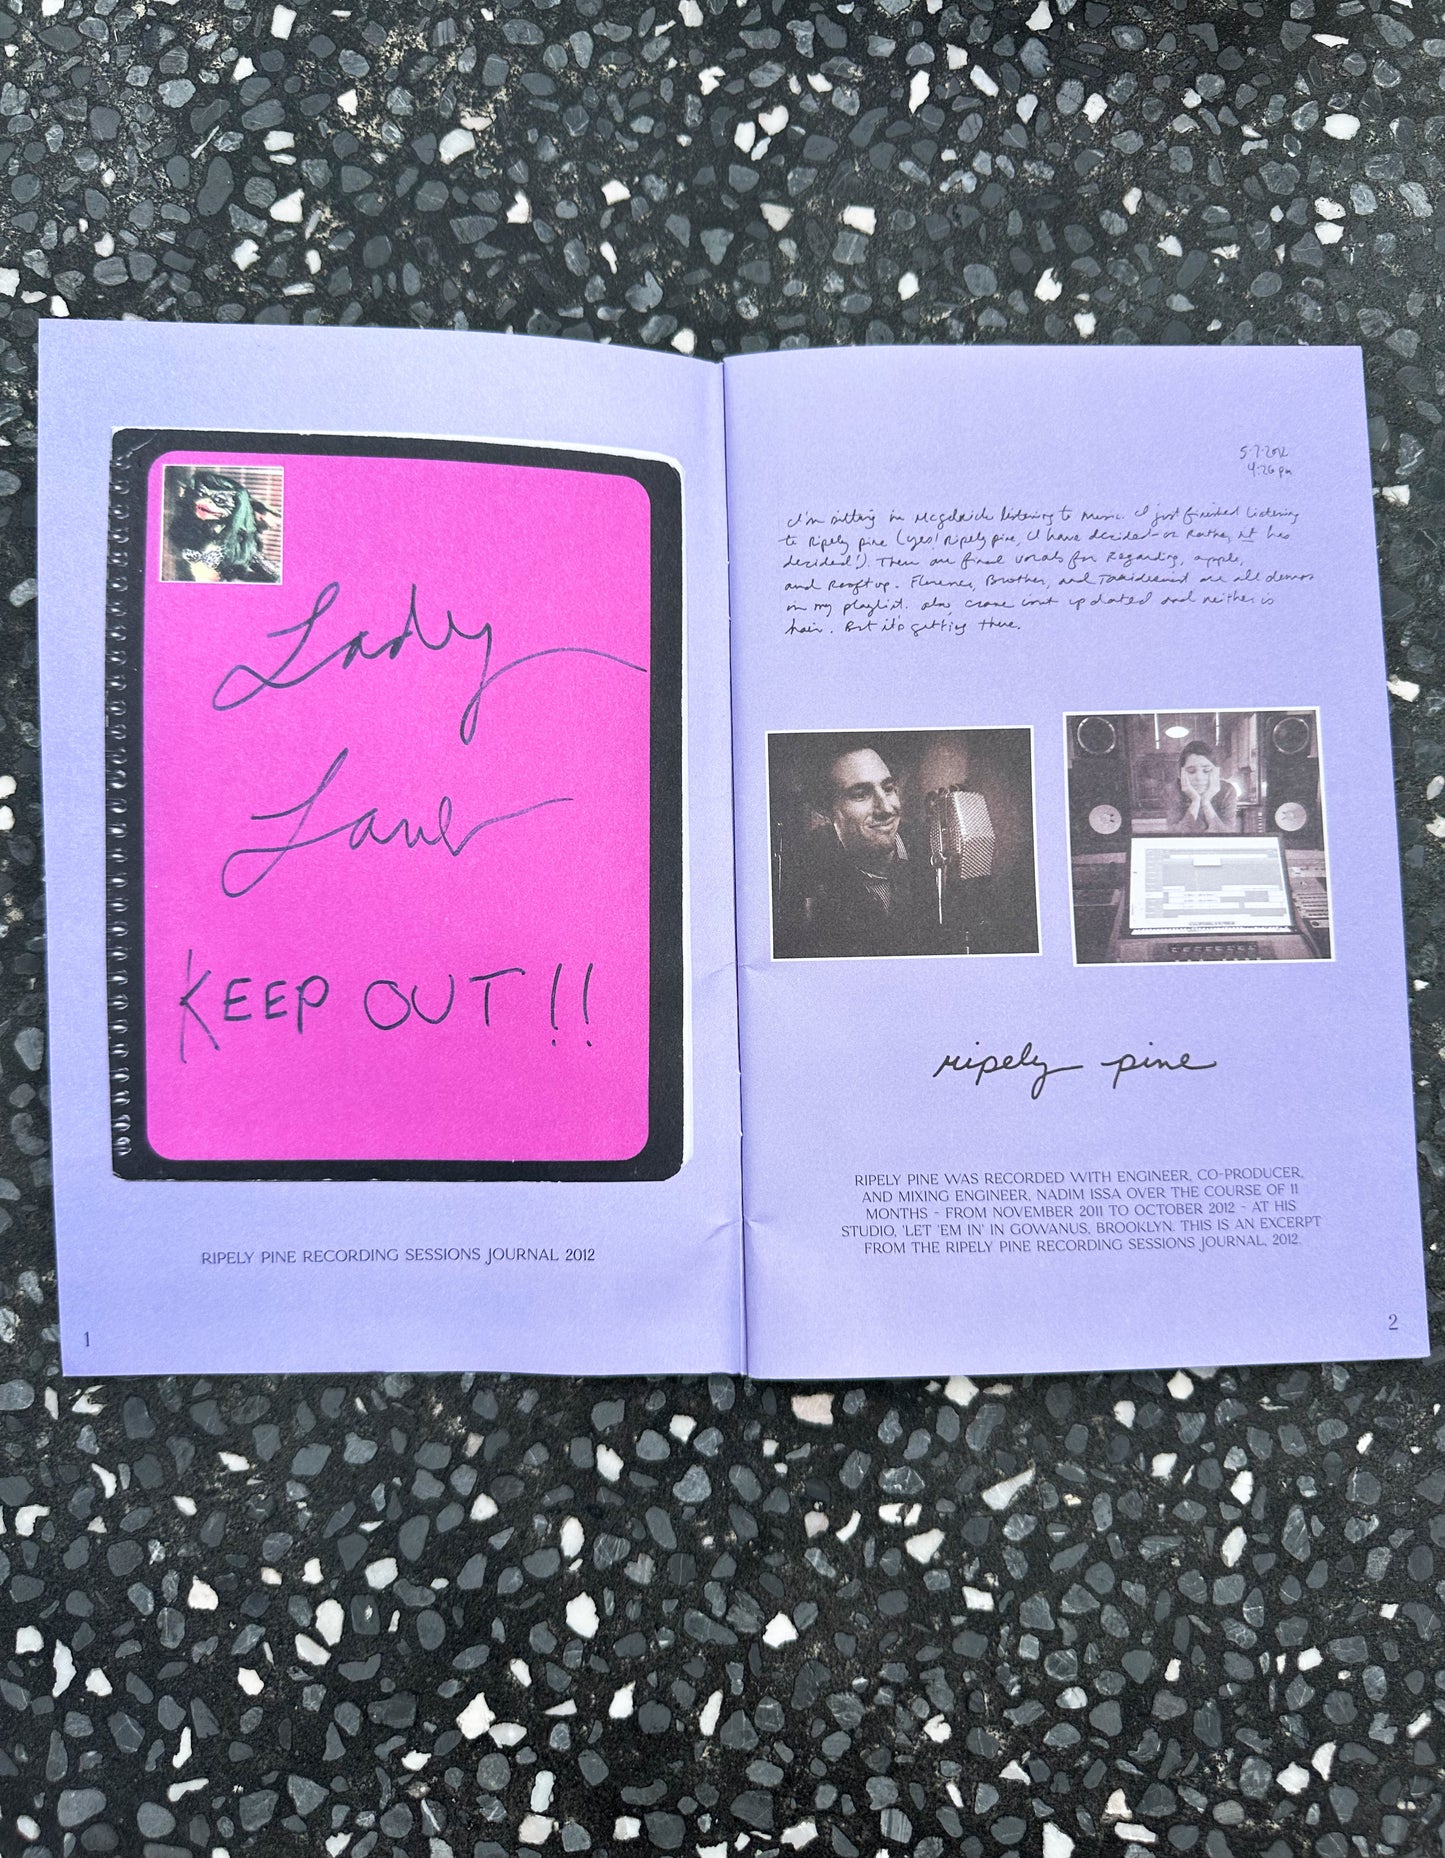 Lady
Lamb
KEEP OUT!!
RIPELY PINE RECORDING SESSIONS JOURNAL 2012
1
5-7-2012
4:26 pm
I'm sitting in McGolrick listening to music. I just finished listening
to Ripely pine (yes! Ripely pine, I have decided - or Rather, it has
decided!). There are final vocals for Regarding, apple,
and Rooftop. Florence, Brother, and Taxidermist are all demos
on my playlist. also, crane isn't updated and neither is
hair. But it's getting there.
ripely pine
RIPELY PINE WAS RECORDED WITH ENGINEER, CO-PRODUCER,
AND MIXING ENGINEER, NADIM ISSA OVER THE COURSE OF 11
MONTHS - FROM NOVEMBER 2011 TO OCTOBER 2012 - AT HIS
STUDIO, 'LET 'EM IN' IN GOWANUS, BROOKLYN. THIS IS AN EXCERPT
FROM THE RIPELY PINE RECORDING SESSIONS JOURNAL, 2012.
2